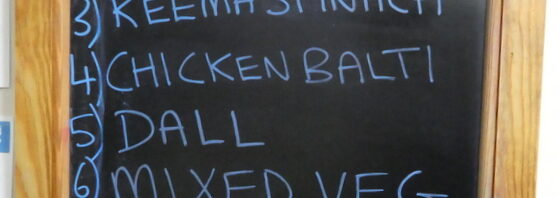 3) KEEMA SPINACH
4) CHICKEN BALTI
5) DALL
6) MIXED VEG